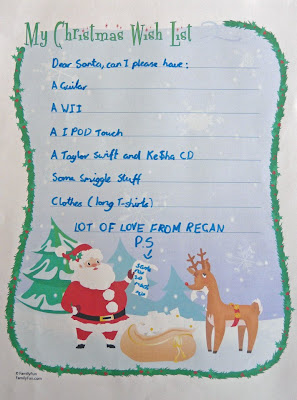 My Christmas Wish List
Dear Santa, can I please have:
A Guitar
A WII
A I POD Touch
A Taylor Swift and Ke$ha CD
Some Smiggle Stuff
Clothes (long T-shirts)
LOT OF LOVE FROM REGAN
P.S
©FamilyFun
FamilyFun.com